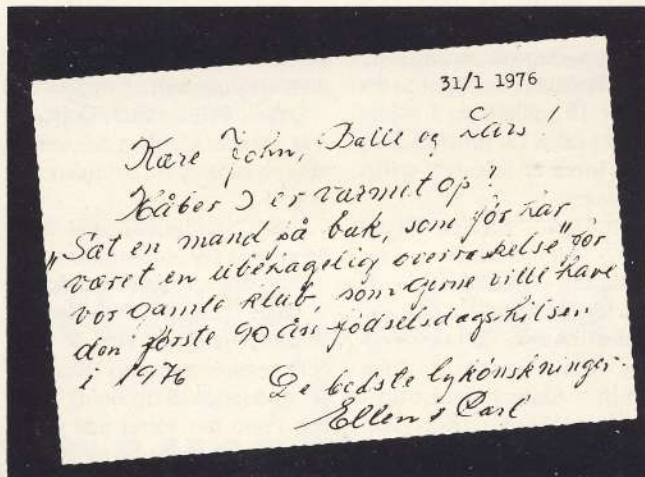 31/1 1976
Kære John, Balle og Lars!
Håber I er varmet op?
"Sæt en mand på bak, som før har
været en ubehagelig overraskelse" for
vor gamle klub, som gerne ville have
den første 90 års fødselsdagshilsen
i 1976
De bedste lykønskninger.
Ellen & Carl